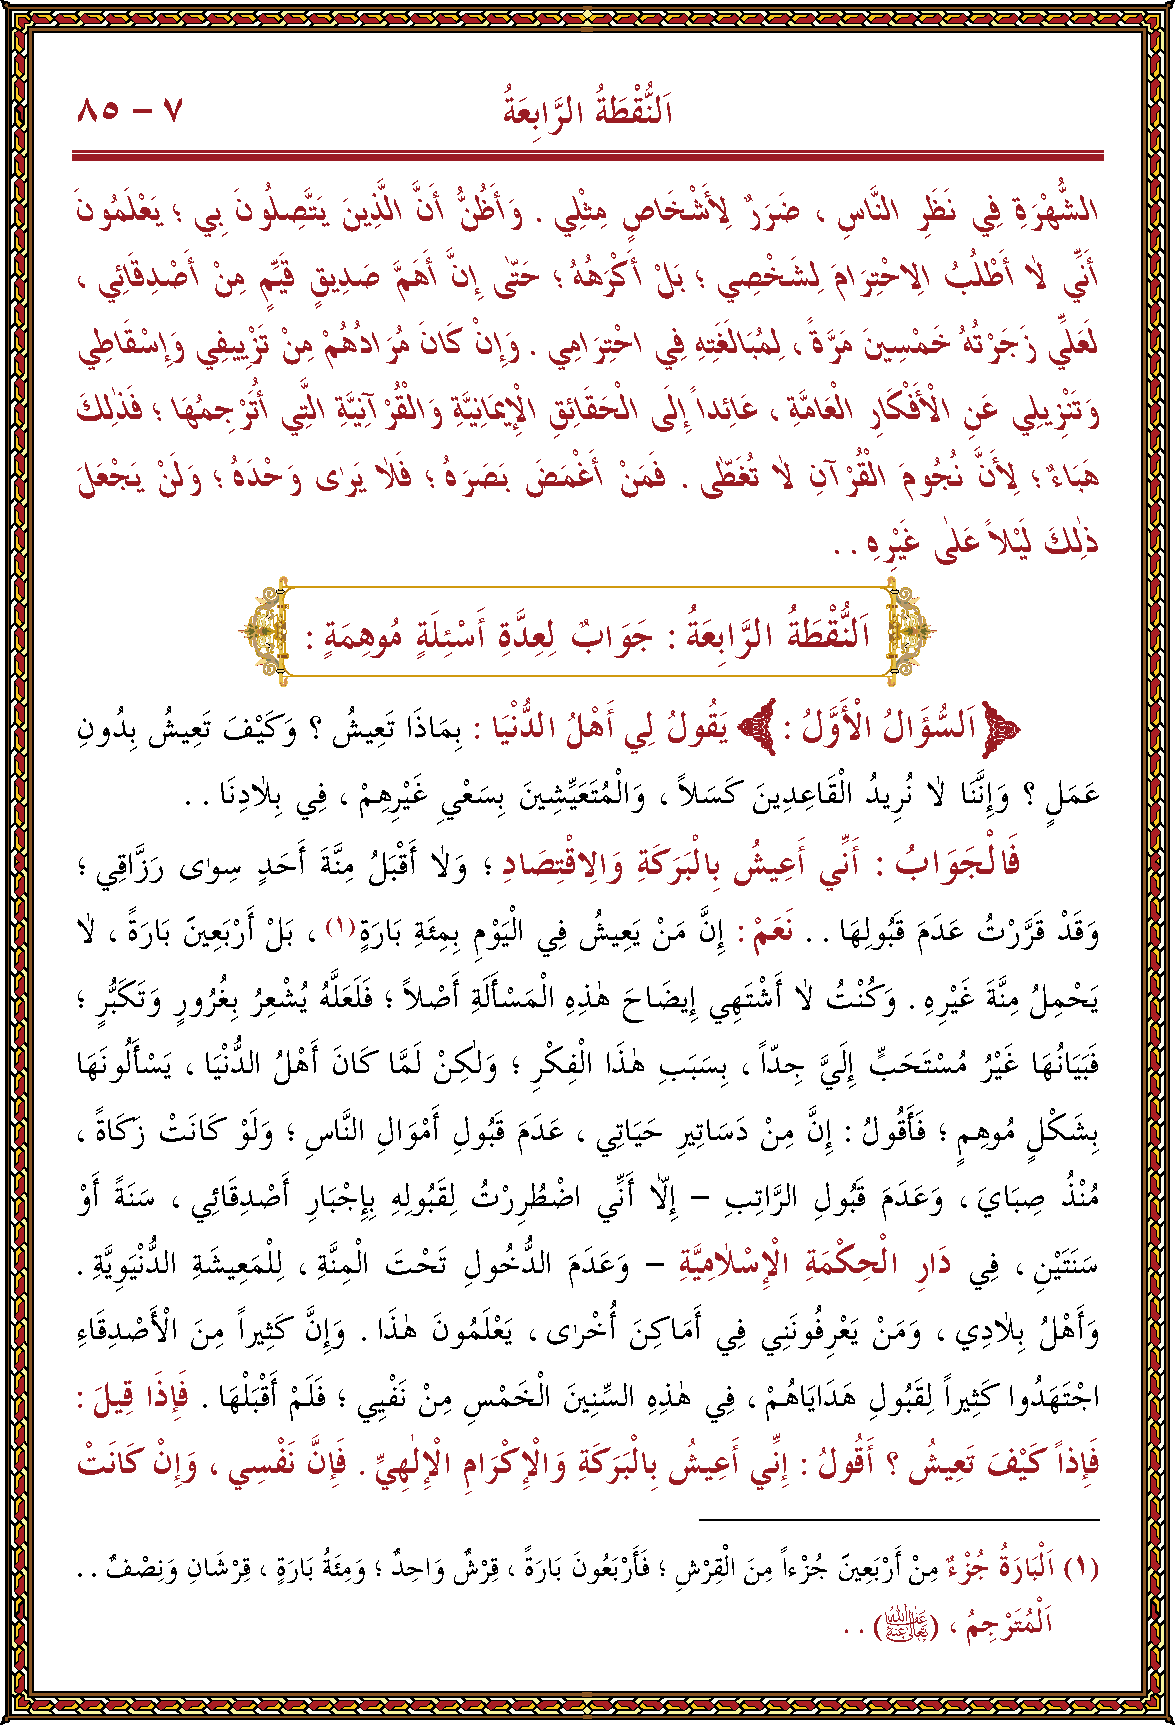 اَلنُّقْطَةُ الرَّابِعَةُ ٧ – ٨٥
الشُّهْرَةِ فِي نَظَرِ النَّاسِ ، ضَرَرٌ لِأَشْخَاصٍ مِثْلِي . وَأَظُنُّ أَنَّ الَّذِينَ يَتَّصِلُونَ بِي ؛ يَعْلَمُونَ
أَنِّي لَا أَطْلُبُ الِاحْتِرَامَ لِشَخْصِي ؛ بَلْ أَكْرَهُهُ ؛ حَتّٰى إِنَّ أَهَمَّ صَدِيقٍ قَيِّمٍ مِنْ أَصْدِقَائِي ،
لَعَلِّي زَجَرْتُهُ خَمْسِينَ مَرَّةً ، لِمُبَالَغَتِهِ فِي احْتِرَامِي . وَإِنْ كَانَ مُرَادُهُمْ مِنْ تَزْيِيفِي وَإِسْقَاطِي
وَتَنْزِيلِي عَنِ الْأَفْكَارِ الْعَامَّةِ ، عَائِداً إِلَى الْحَقَائِقِ الْإِيمَانِيَّةِ وَالْقُرْآنِيَّةِ الَّتِي أُتَرْجِمُهَا ؛ فَذٰلِكَ
هَبَاءٌ ؛ لِأَنَّ نُجُومَ الْقُرْآنِ لَا تُغَطّٰى . فَمَنْ أَغْمَضَ بَصَرَهُ ؛ فَلَا يَرٰى وَحْدَهُ ؛ وَلَنْ يَجْعَلَ
ذٰلِكَ لَيْلاً عَلٰى غَيْرِهِ . .
اَلنُّقْطَةُ الرَّابِعَةُ : جَوَابٌ لِعِدَّةِ أَسْئِلَةٍ مُوهِمَةٍ :
اَلسُّؤَالُ الْأَوَّلُ : يَقُولُ لِي أَهْلُ الدُّنْيَا : بِمَاذَا تَعِيشُ ؟ وَكَيْفَ تَعِيشُ بِدُونِ
عَمَلٍ ؟ وَإِنَّنَا لَا نُرِيدُ الْقَاعِدِينَ كَسَلاً ، وَالْمُتَعَيِّشِينَ بِسَعْيِ غَيْرِهِمْ ، فِي بِلَادِنَا . .
فَالْجَوَابُ : أَنِّي أَعِيشُ بِالْبَرَكَةِ وَالِاقْتِصَادِ ؛ وَلَا أَقْبَلُ مِنَّةَ أَحَدٍ سِوٰى رَزَّاقِي ؛
وَقَدْ قَرَّرْتُ عَدَمَ قَبُولِهَا . . نَعَمْ : إِنَّ مَنْ يَعِيشُ فِي الْيَوْمِ بِمِئَةِ بَارَةٍ(١) ، بَلْ أَرْبَعِينَ بَارَةً ، لَا
يَحْمِلُ مِنَّةَ غَيْرِهِ . وَكُنْتُ لَا أَشْتَهِي إِيضَاحَ هٰذِهِ الْمَسْأَلَةِ أَصْلاً ؛ فَلَعَلَّهُ يُشْعِرُ بِغُرُورٍ وَتَكَبُّرٍ ؛
فَبَيَانُهَا غَيْرُ مُسْتَحَبٍّ إِلَيَّ جِدّاً ، بِسَبَبِ هٰذَا الْفِكْرِ ؛ وَلٰكِنْ لَمَّا كَانَ أَهْلُ الدُّنْيَا ، يَسْأَلُونَهَا
بِشَكْلٍ مُوهِمٍ ؛ فَأَقُولُ : إِنَّ مِنْ دَسَاتِيرِ حَيَاتِي ، عَدَمَ قَبُولِ أَمْوَالِ النَّاسِ ؛ وَلَوْ كَانَتْ زَكَاةً ،
مُنْذُ صِبَايَ ، وَعَدَمَ قَبُولِ الرَّاتِبِ – إِلَّا أَنِّي اضْطُرِرْتُ لِقَبُولِهِ بِإِجْبَارِ أَصْدِقَائِي ، سَنَةً أَوْ
سَنَتَيْنِ ، فِي دَارِ الْحِكْمَةِ الْإِسْلَامِيَّةِ – وَعَدَمَ الدُّخُولِ تَحْتَ الْمِنَّةِ ، لِلْمَعِيشَةِ الدُّنْيَوِيَّةِ .
وَأَهْلُ بِلَادِي ، وَمَنْ يَعْرِفُونَنِي فِي أَمَاكِنَ أُخْرٰى ، يَعْلَمُونَ هٰذَا . وَإِنَّ كَثِيراً مِنَ الْأَصْدِقَاءِ
اجْتَهَدُوا كَثِيراً لِقَبُولِ هَدَايَاهُمْ ، فِي هٰذِهِ السِّنِينَ الْخَمْسِ مِنْ نَفْيِي ؛ فَلَمْ أَقْبَلْهَا . فَإِذَا قِيلَ :
فَإِذاً كَيْفَ تَعِيشُ ؟ أَقُولُ : إِنِّي أَعِيشُ بِالْبَرَكَةِ وَالْإِكْرَامِ الْإِلٰهِيِّ . فَإِنَّ نَفْسِي ، وَإِنْ كَانَتْ
(١) اَلْبَارَةُ جُزْءٌ مِنْ أَرْبَعِينَ جُزْءاً مِنَ الْقِرْشِ ؛ فَأَرْبَعُونَ بَارَةً ، قِرْشٌ وَاحِدٌ ؛ وَمِئَةُ بَارَةٍ ، قِرْشَانِ وَنِصْفٌ . .
اَلْمُتَرْجِمُ ، (عفا الله تعالى عنه) . .